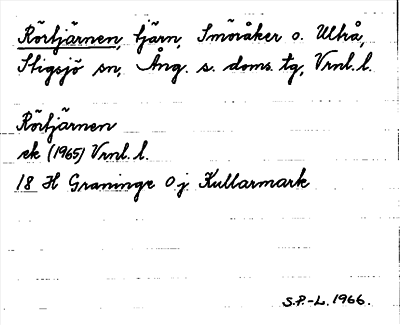 Rörtjärnen, tjärn, Smöråker o. Ultrå,
Stigsjö sn, Ång. s. doms. tg, Vrnl. l.
Rörtjärnen
ek (1965) Vrnl. l.
18 H Graninge 0 j Kullarmark
S.P.-L. 1966.